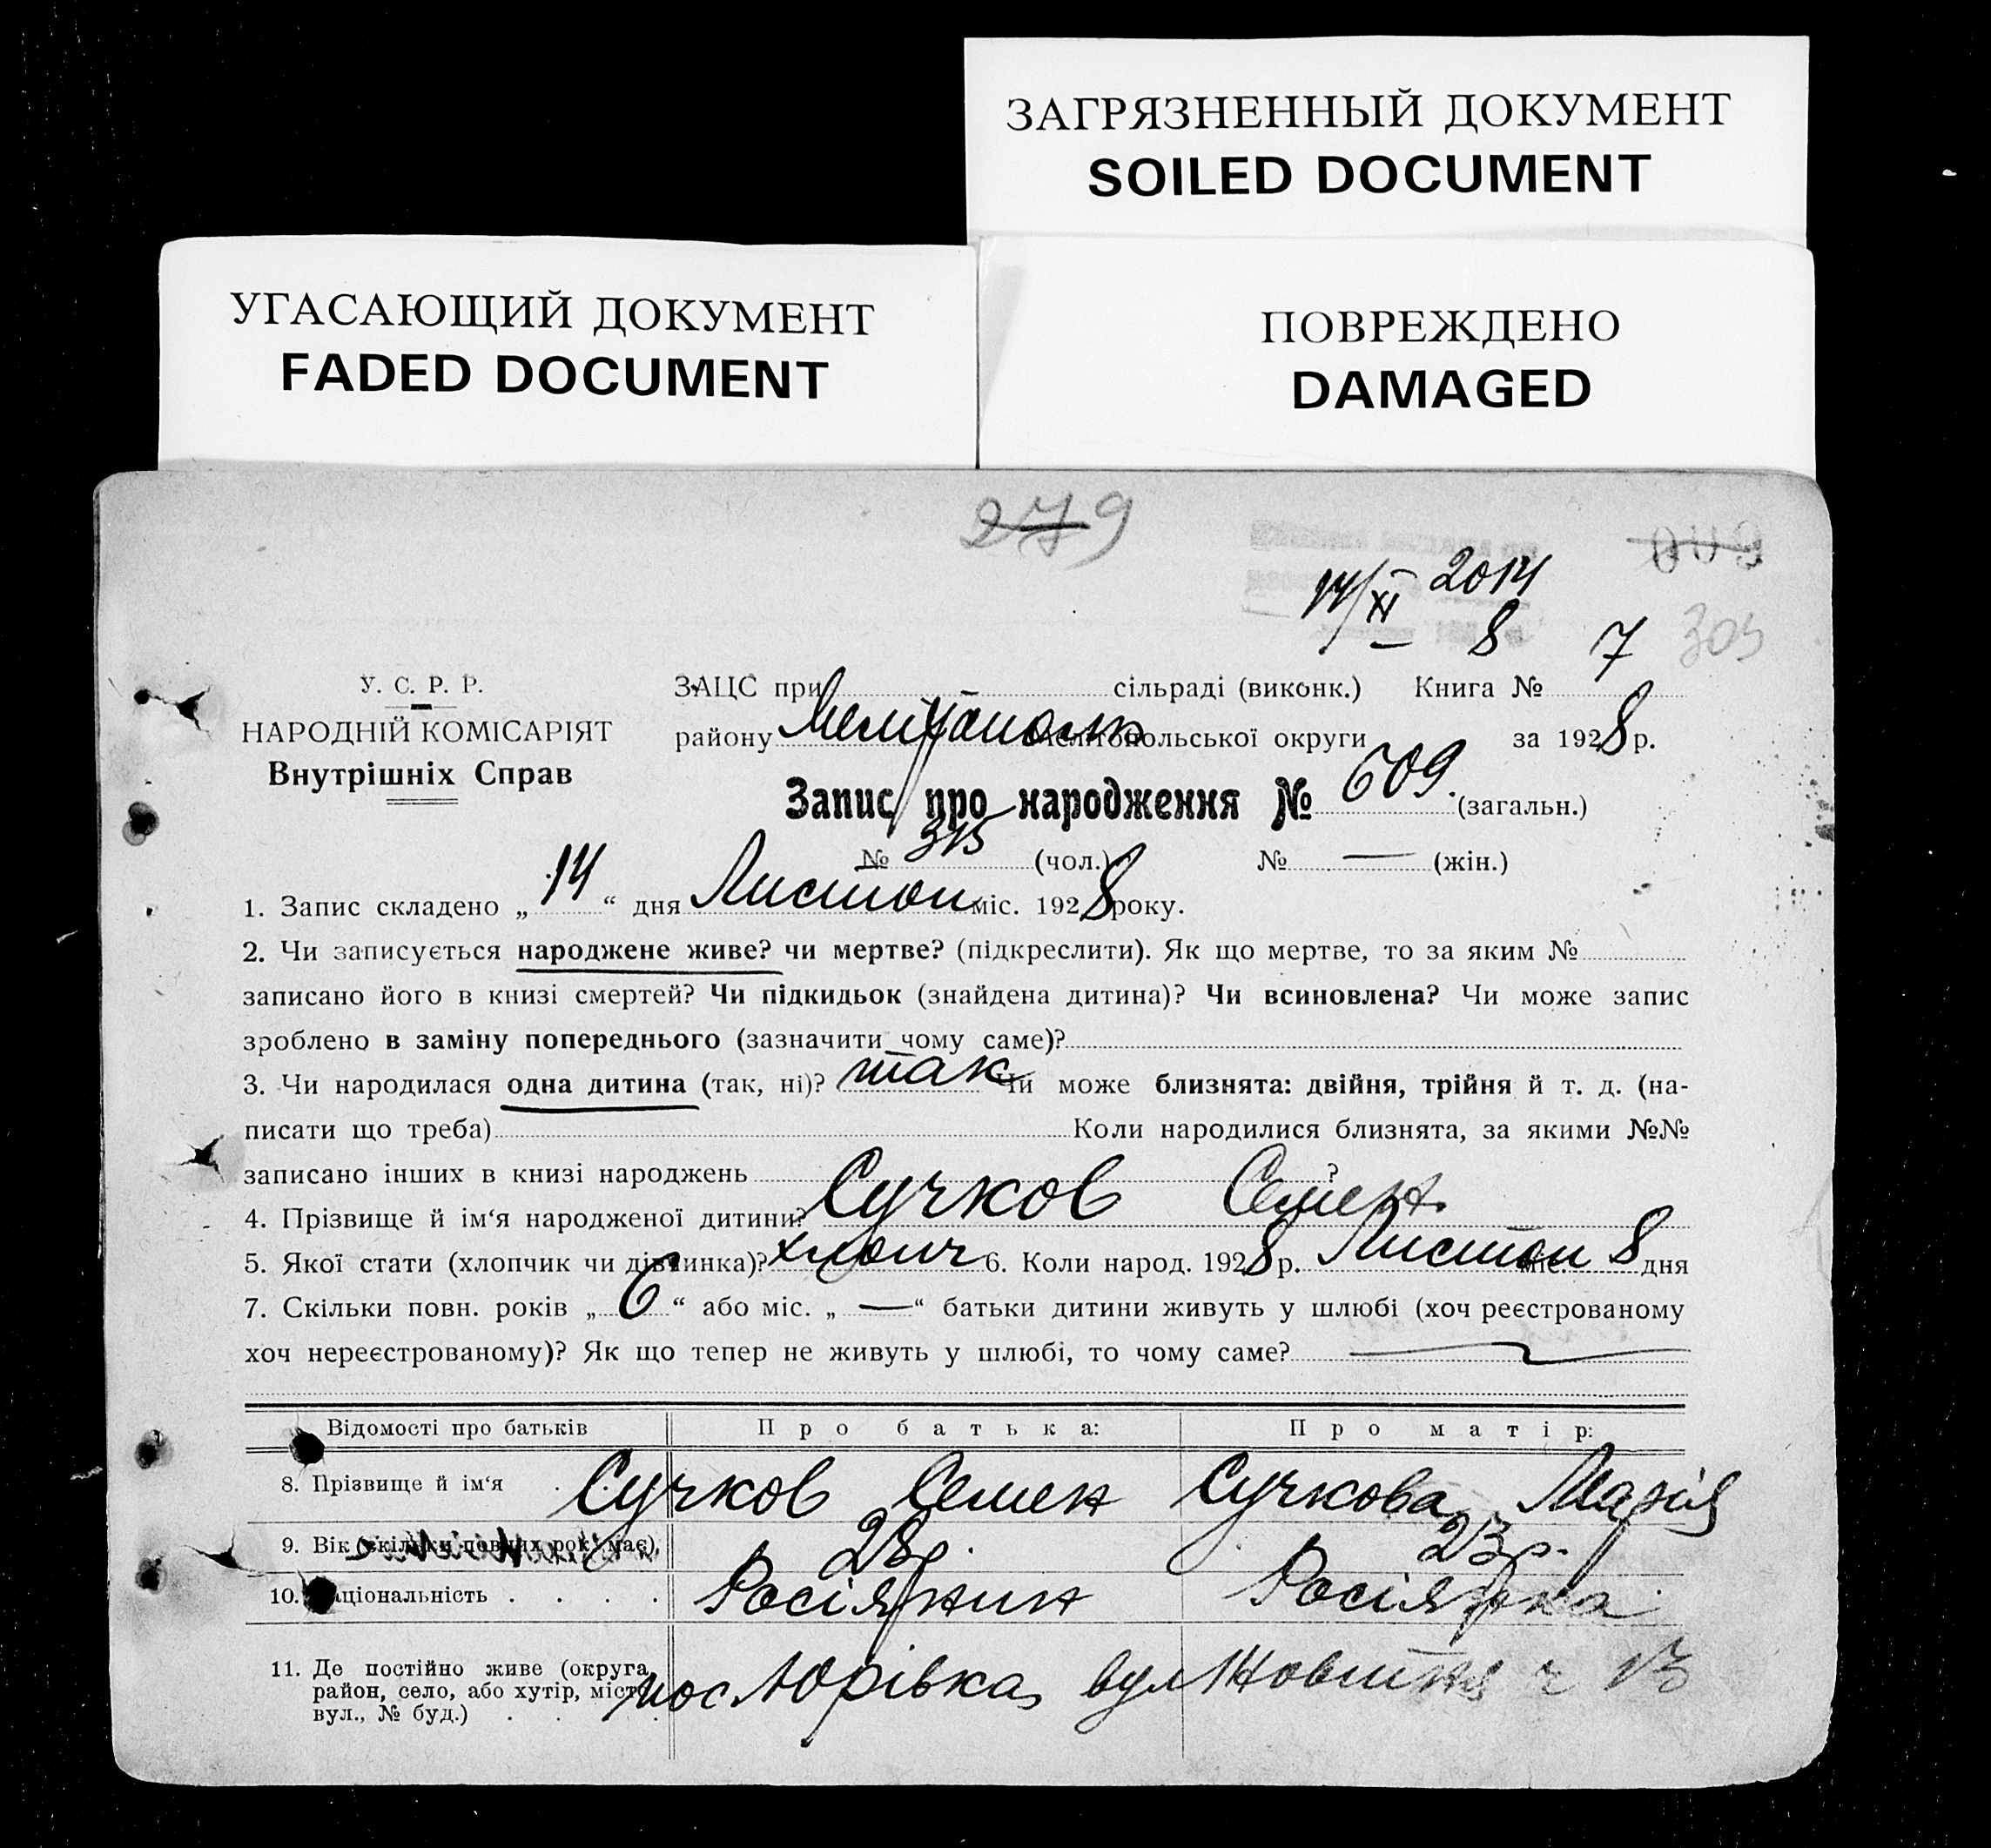 ЗАГРЯЗНЕННЫЙ ДОКУМЕНТ
SOILED DOCUMENT
УГАСАЮЩИЙ ДОКУМЕНТ
FADED DOCUMENT
ПОВРЕЖДЕНО
DAMAGED
279
14/XI 2014
8 7
У. С. Р. Р.
НАРОДНІЙ КОМІСАРІЯТ
Внутрішніх Справ
ЗАЦС при сільраді (виконк.) Книга №
району Мелітополь Мелітопольської округи за 1928 р.
Запис про народження № 609. (загальн.)
№ 315 (чол.) № — (жін.)
1. Запис складено „14“ дня Листоп міс. 1928 року.
2. Чи записується народжене живе? чи мертве? (підкреслити). Як що мертве, то за яким №
записано його в книзі смертей? Чи підкидьок (знайдена дитина)? Чи всиновлена? Чи може запис
зроблено в заміну попереднього (зазначити чому саме)?
3. Чи народилася одна дитина (так, ні)? так Чи може близнята: двійня, трійня й т. д. (на-
писати що треба) Коли народилися близнята, за якими №№
записано інших в книзі народжень ?
4. Прізвище й ім‘я народженої дитини? Сучков Семен
5. Якої стати (хлопчик чи дівчинка)? хлопч 6. Коли народ. 1928 р. Листоп міс. 8 дня
7. Скільки повн. років „6“ або міс. „—“ батьки дитини живуть у шлюбі (хоч реєстрованому
хоч нереєстрованому)? Як що тепер не живуть у шлюбі, то чому саме?
Відомості про батьків Про батька: Про матір:
8. Прізвище й ім‘я Сучков Семен Сучкова Марія
9. Вік (скільки повних рок. має), 28р. 23р.
10. Національність Росіянин Росіянка
11. Де постійно живе (округа,
район, село, або хутір, місто
вул., № буд.)
пос Юрівка, вул 13